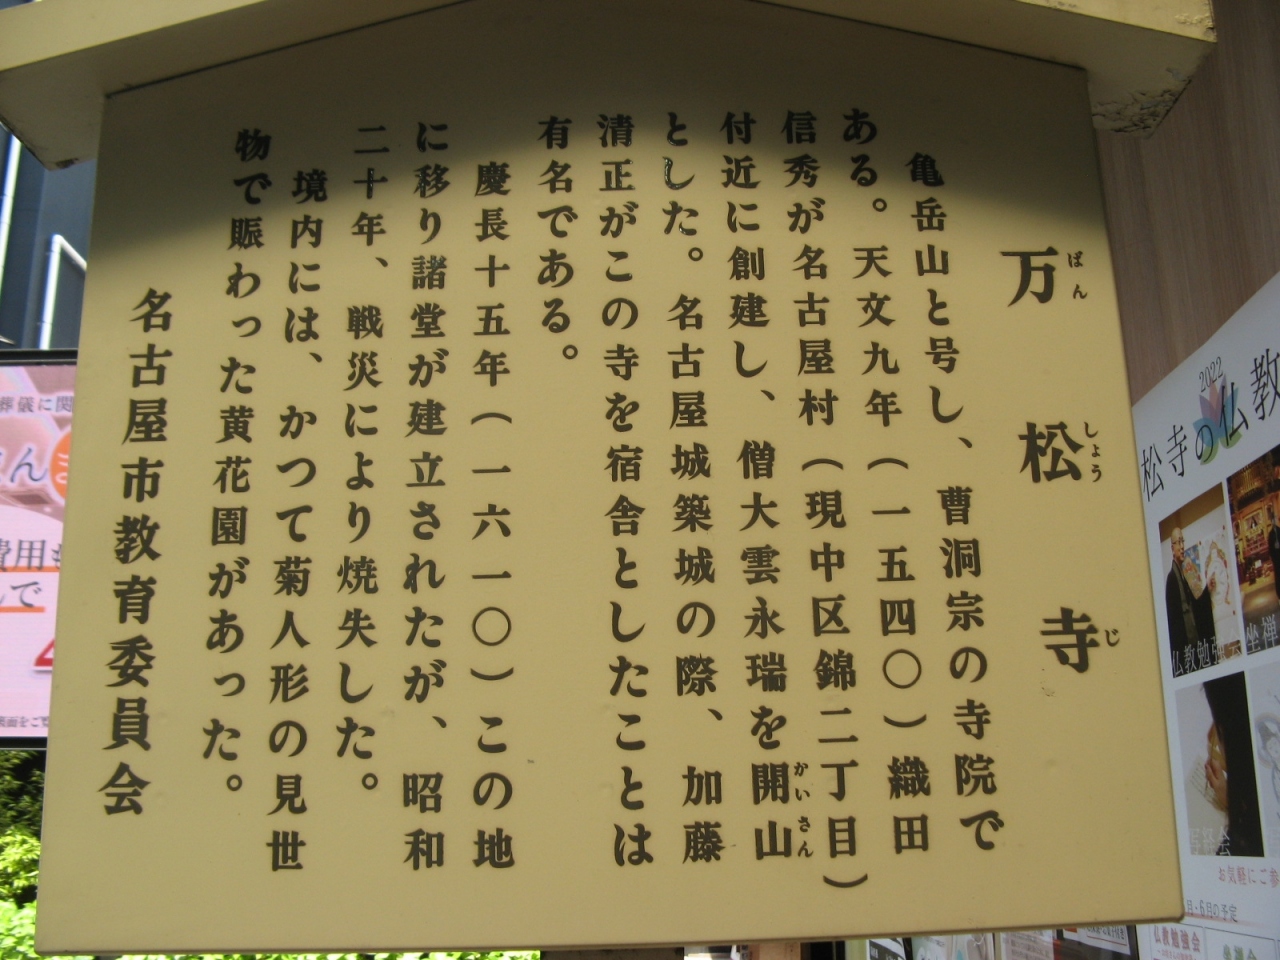 万松寺
ばんしょうじ
亀岳山と号し、曹洞宗の寺院で
ある。天文九年(一五四〇)織田
信秀が名古屋村(現中区錦二丁目)
付近に創建し、僧大雲永瑞を開山
かいさん
とした。名古屋城築城の際、加藤
清正がこの寺を宿舎としたことは
有名である。
慶長十五年(一六一〇)この地
に移り諸堂が建立されたが、昭和
二十年、戦災により焼失した。
境内には、かつて菊人形の見世
物で賑わった黄花園があった。
名古屋市教育委員会
2022
松寺の仏教
仏教勉強会
坐禅
写経会
お気軽にご参
月・6月の予定
仏教勉強会
葬儀に関
費用も